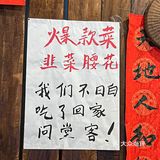 爆款菜
韭菜腰花
我们不日白
吃了回家
问堂客！
地人
大众点评